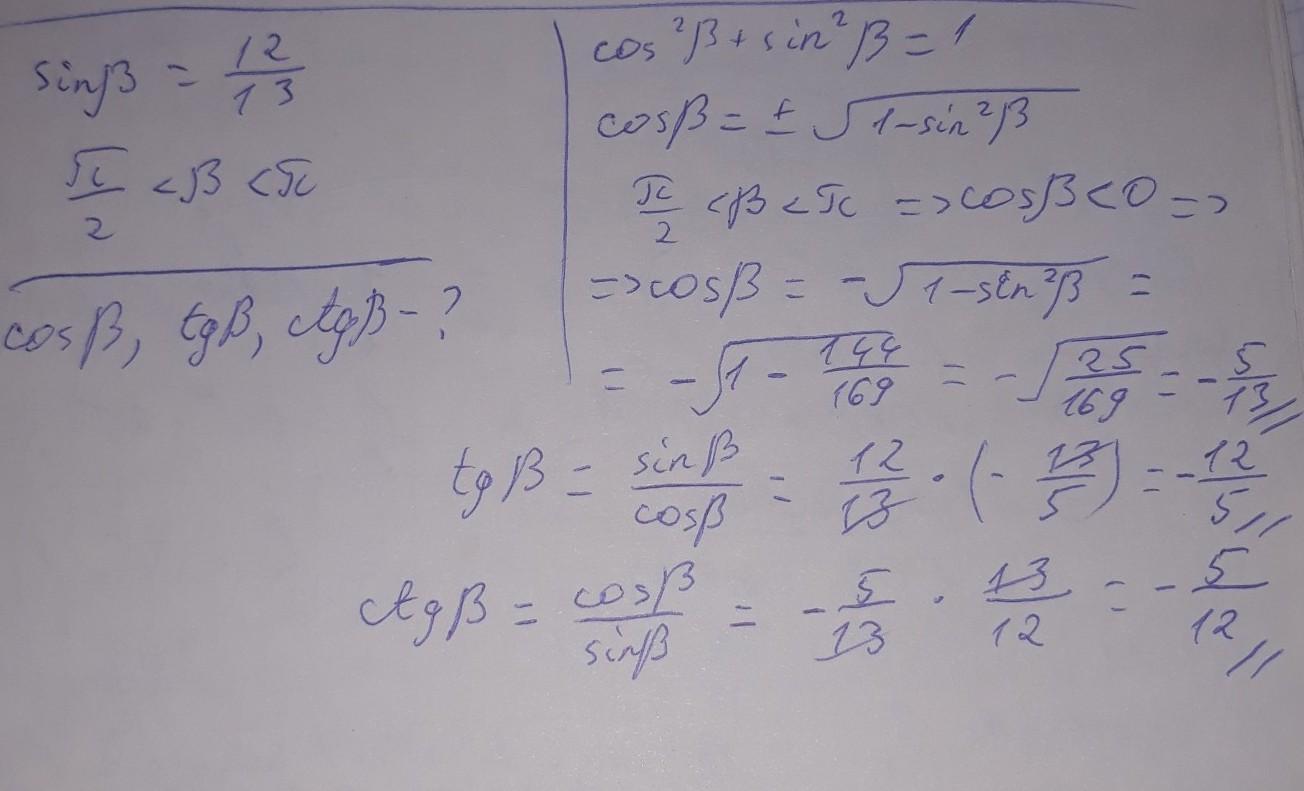 sinβ = 12/13
π/2 < β < π
cosβ, tgβ, ctgβ - ?
cos²β + sin²β = 1
cosβ = ± √(1-sin²β)
π/2 < β < π => cosβ < 0 =>
=> cosβ = -√(1-sin²β) =
= -√(1 - 144/169) = -√(25/169) = -5/13 //
tgβ = sinβ/cosβ = 12/13 · (-13/5) = -12/5 //
ctgβ = cosβ/sinβ = -5/13 · 13/12 = -5/12 //